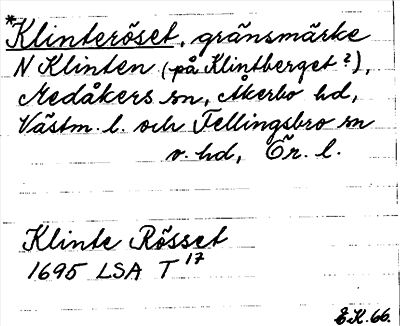 *Klinteröset, gränsmärke
N Klinten (på Klintberget?),
Medåkers sn, Åkerbo hd,
Västm. l. och Fellingsbro sn
o. hd, Ör. l.
Klinte Rösset
1695 LSA T 17
E.K. 66.